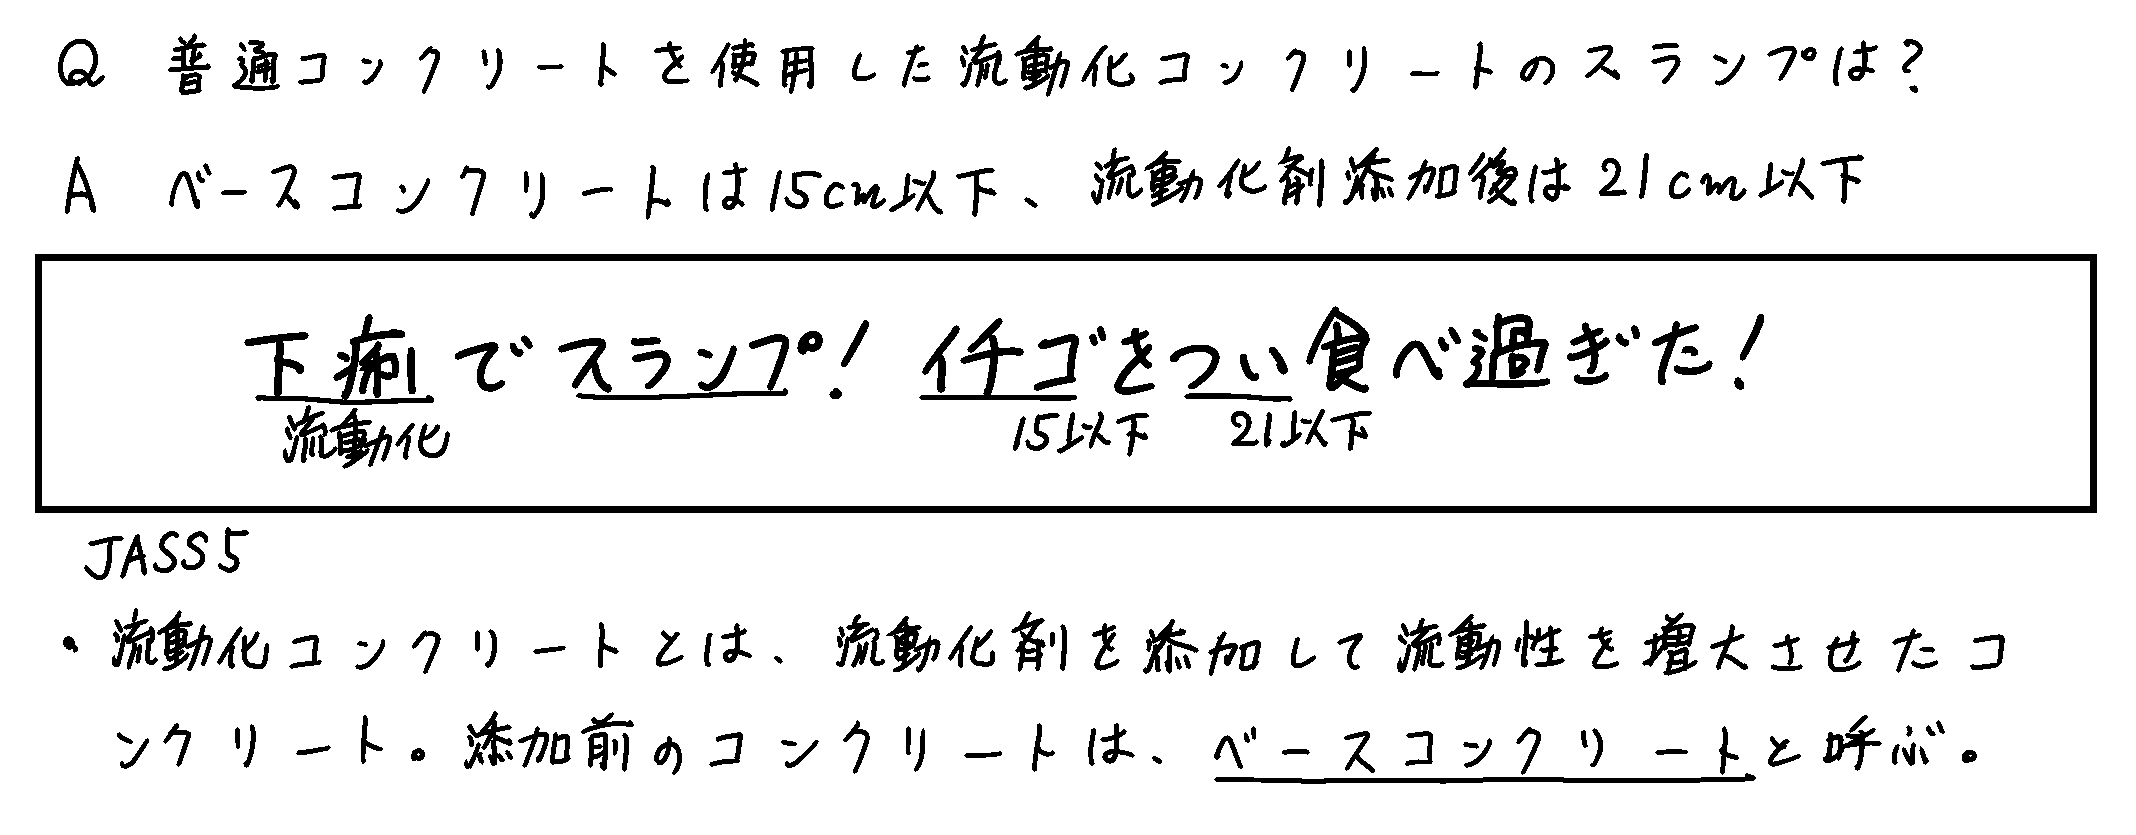 Q 普通コンクリートを使用した流動化コンクリートのスランプは?
A ベースコンクリートは15cm以下、流動化剤添加後は21cm以下
下痢でスランプ!イチゴをつい食べ過ぎた!
流動化 15以下 21以下
JASS5
・流動化コンクリートとは、流動化剤を添加して流動性を増大させたコ
ンクリート。添加前のコンクリートは、ベースコンクリートと呼ぶ。